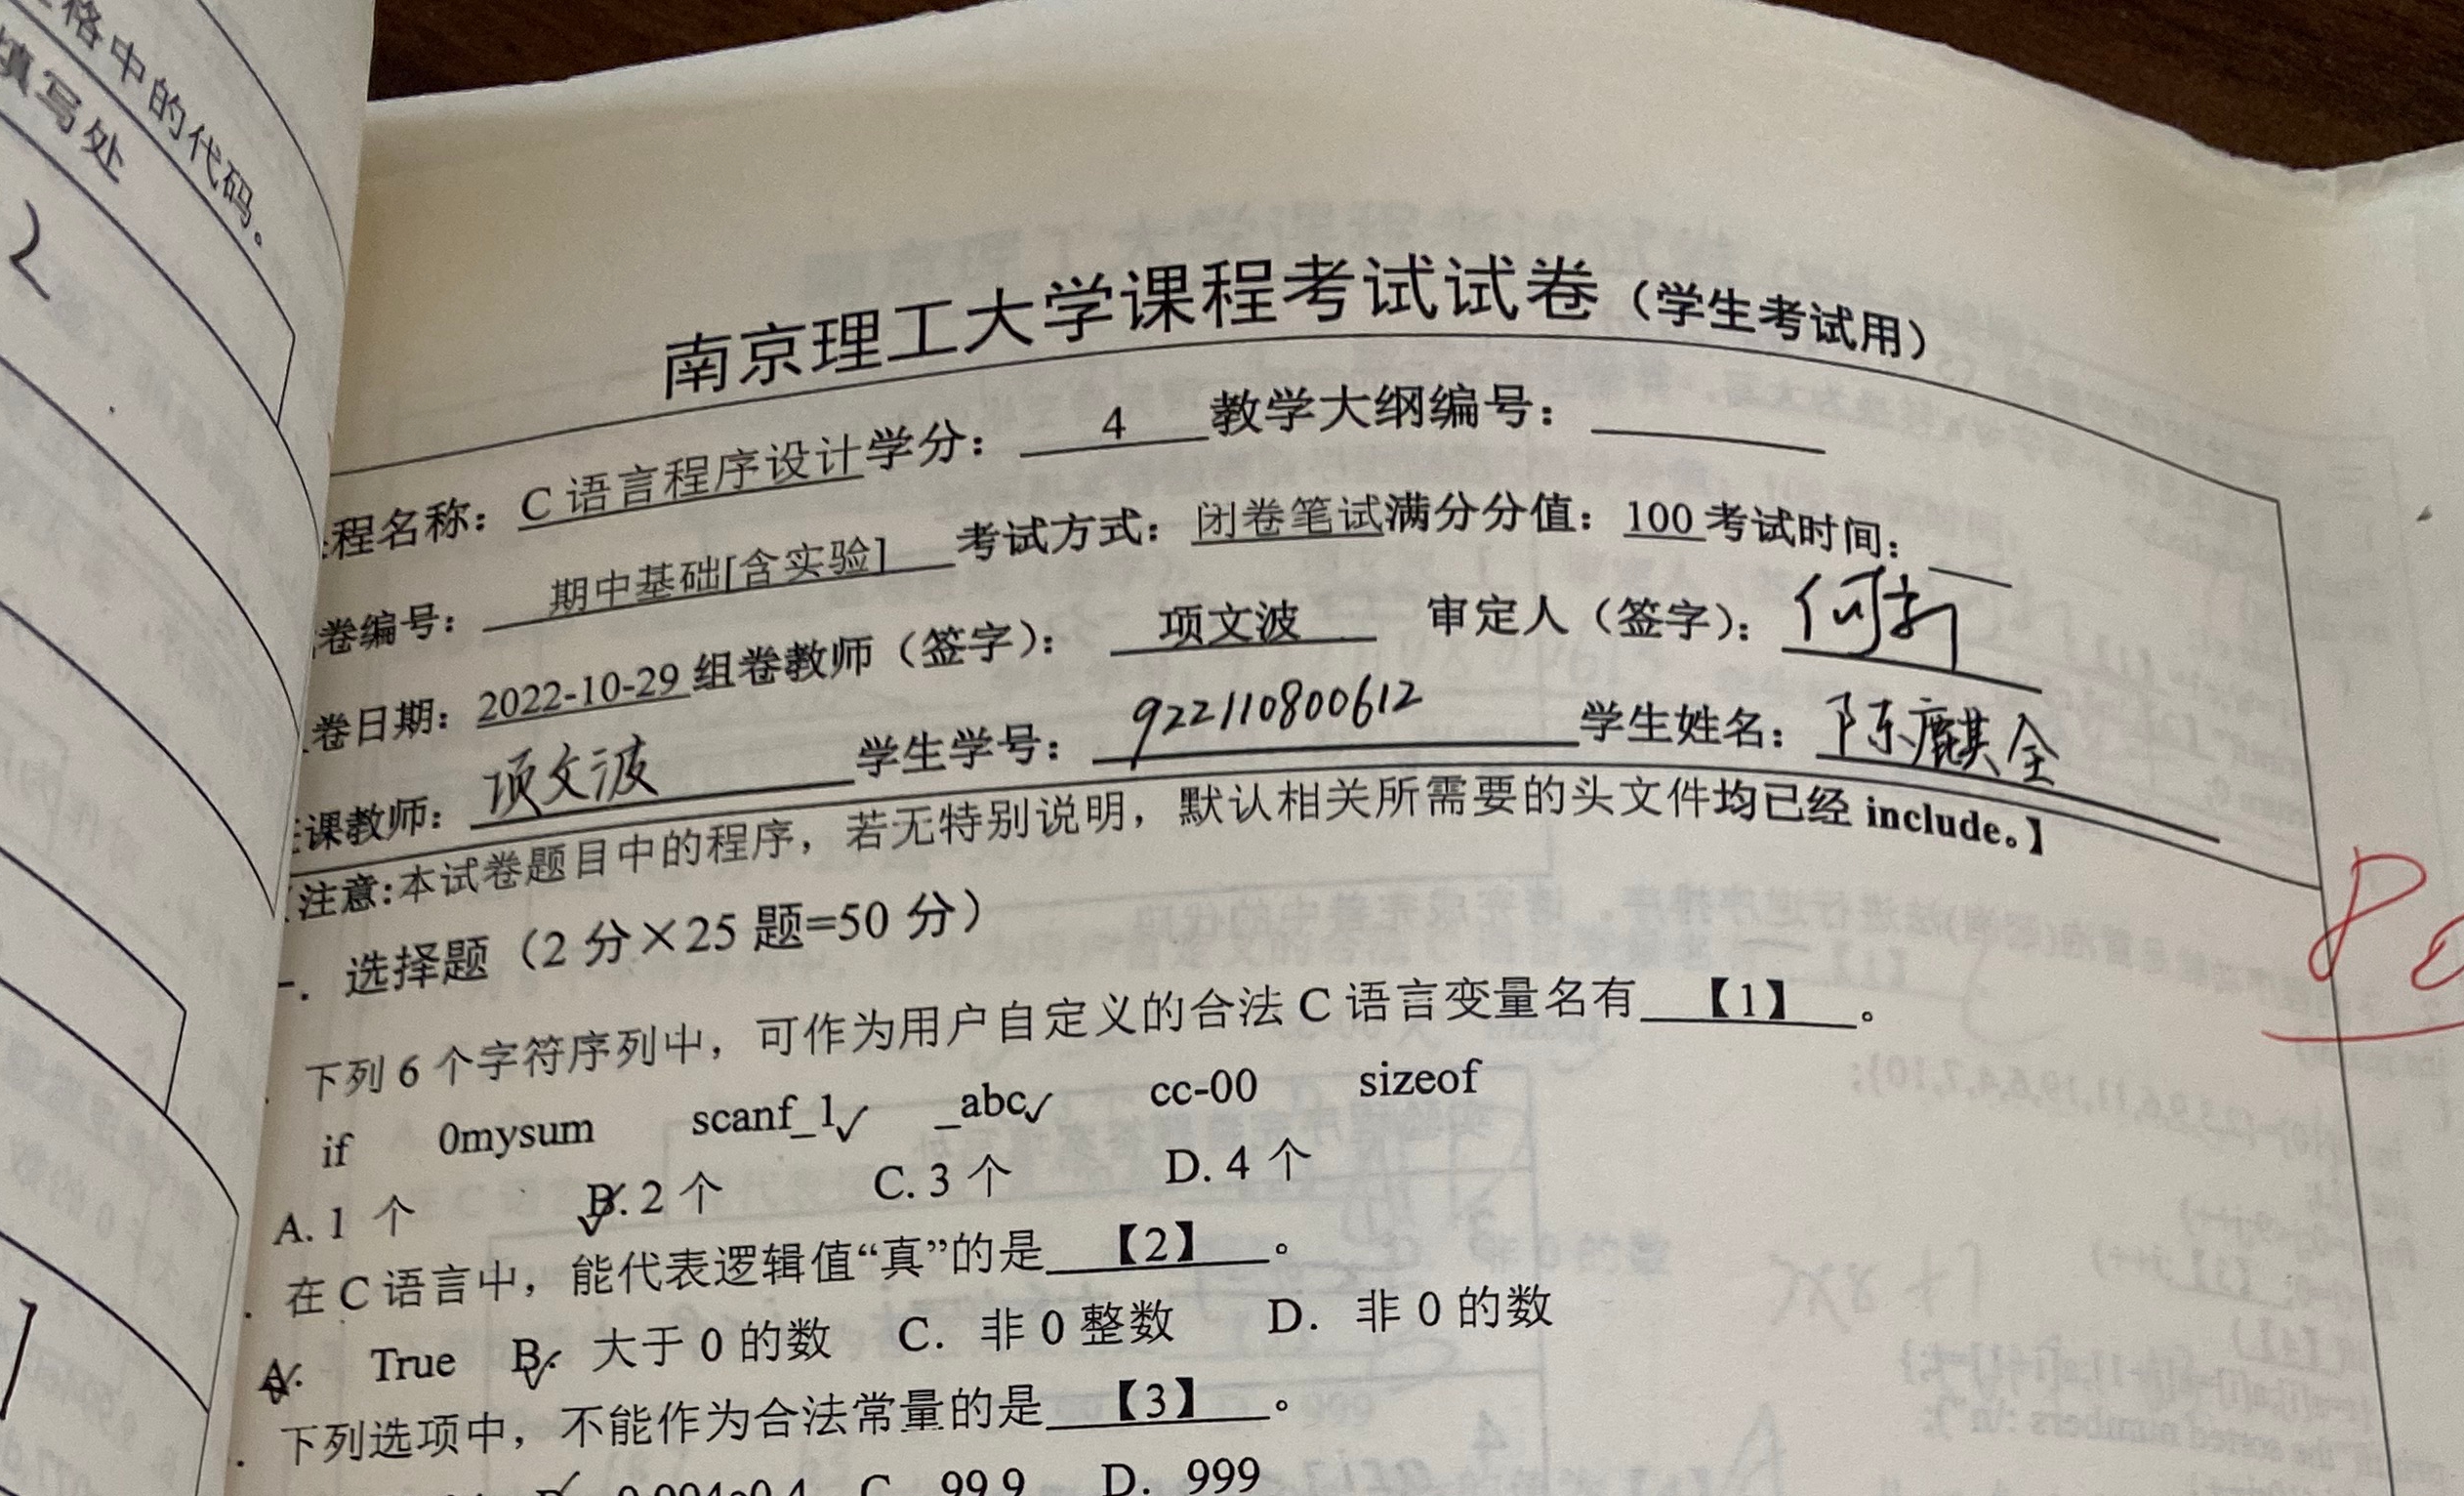 格中的代码。
填写处
2
南京理工大学课程考试试卷（学生考试用）
程名称：C 语言程序设计学分： 4 教学大纲编号：
卷编号： 期中基础[含实验] 考试方式：闭卷笔试满分分值：100 考试时间：
卷日期：2022-10-29 组卷教师（签字）： 项文波 审定人（签字）：何新
课教师： 项文波 学生学号： 922110800612 学生姓名：陈麒全
【注意:本试卷题目中的程序，若无特别说明，默认相关所需要的头文件均已经 include。】
一．选择题（2 分×25 题=50 分）
下列 6 个字符序列中，可作为用户自定义的合法 C 语言变量名有 【1】 。
if 0mysum scanf_1✓ _abc✓ cc-00 sizeof
A. 1 个 B. 2 个 C. 3 个 D. 4 个
. 在 C 语言中，能代表逻辑值“真”的是 【2】 。
A. True B. 大于 0 的数 C. 非 0 整数 D. 非 0 的数
. 下列选项中，不能作为合法常量的是 【3】 。
C. 99.9 D. 999